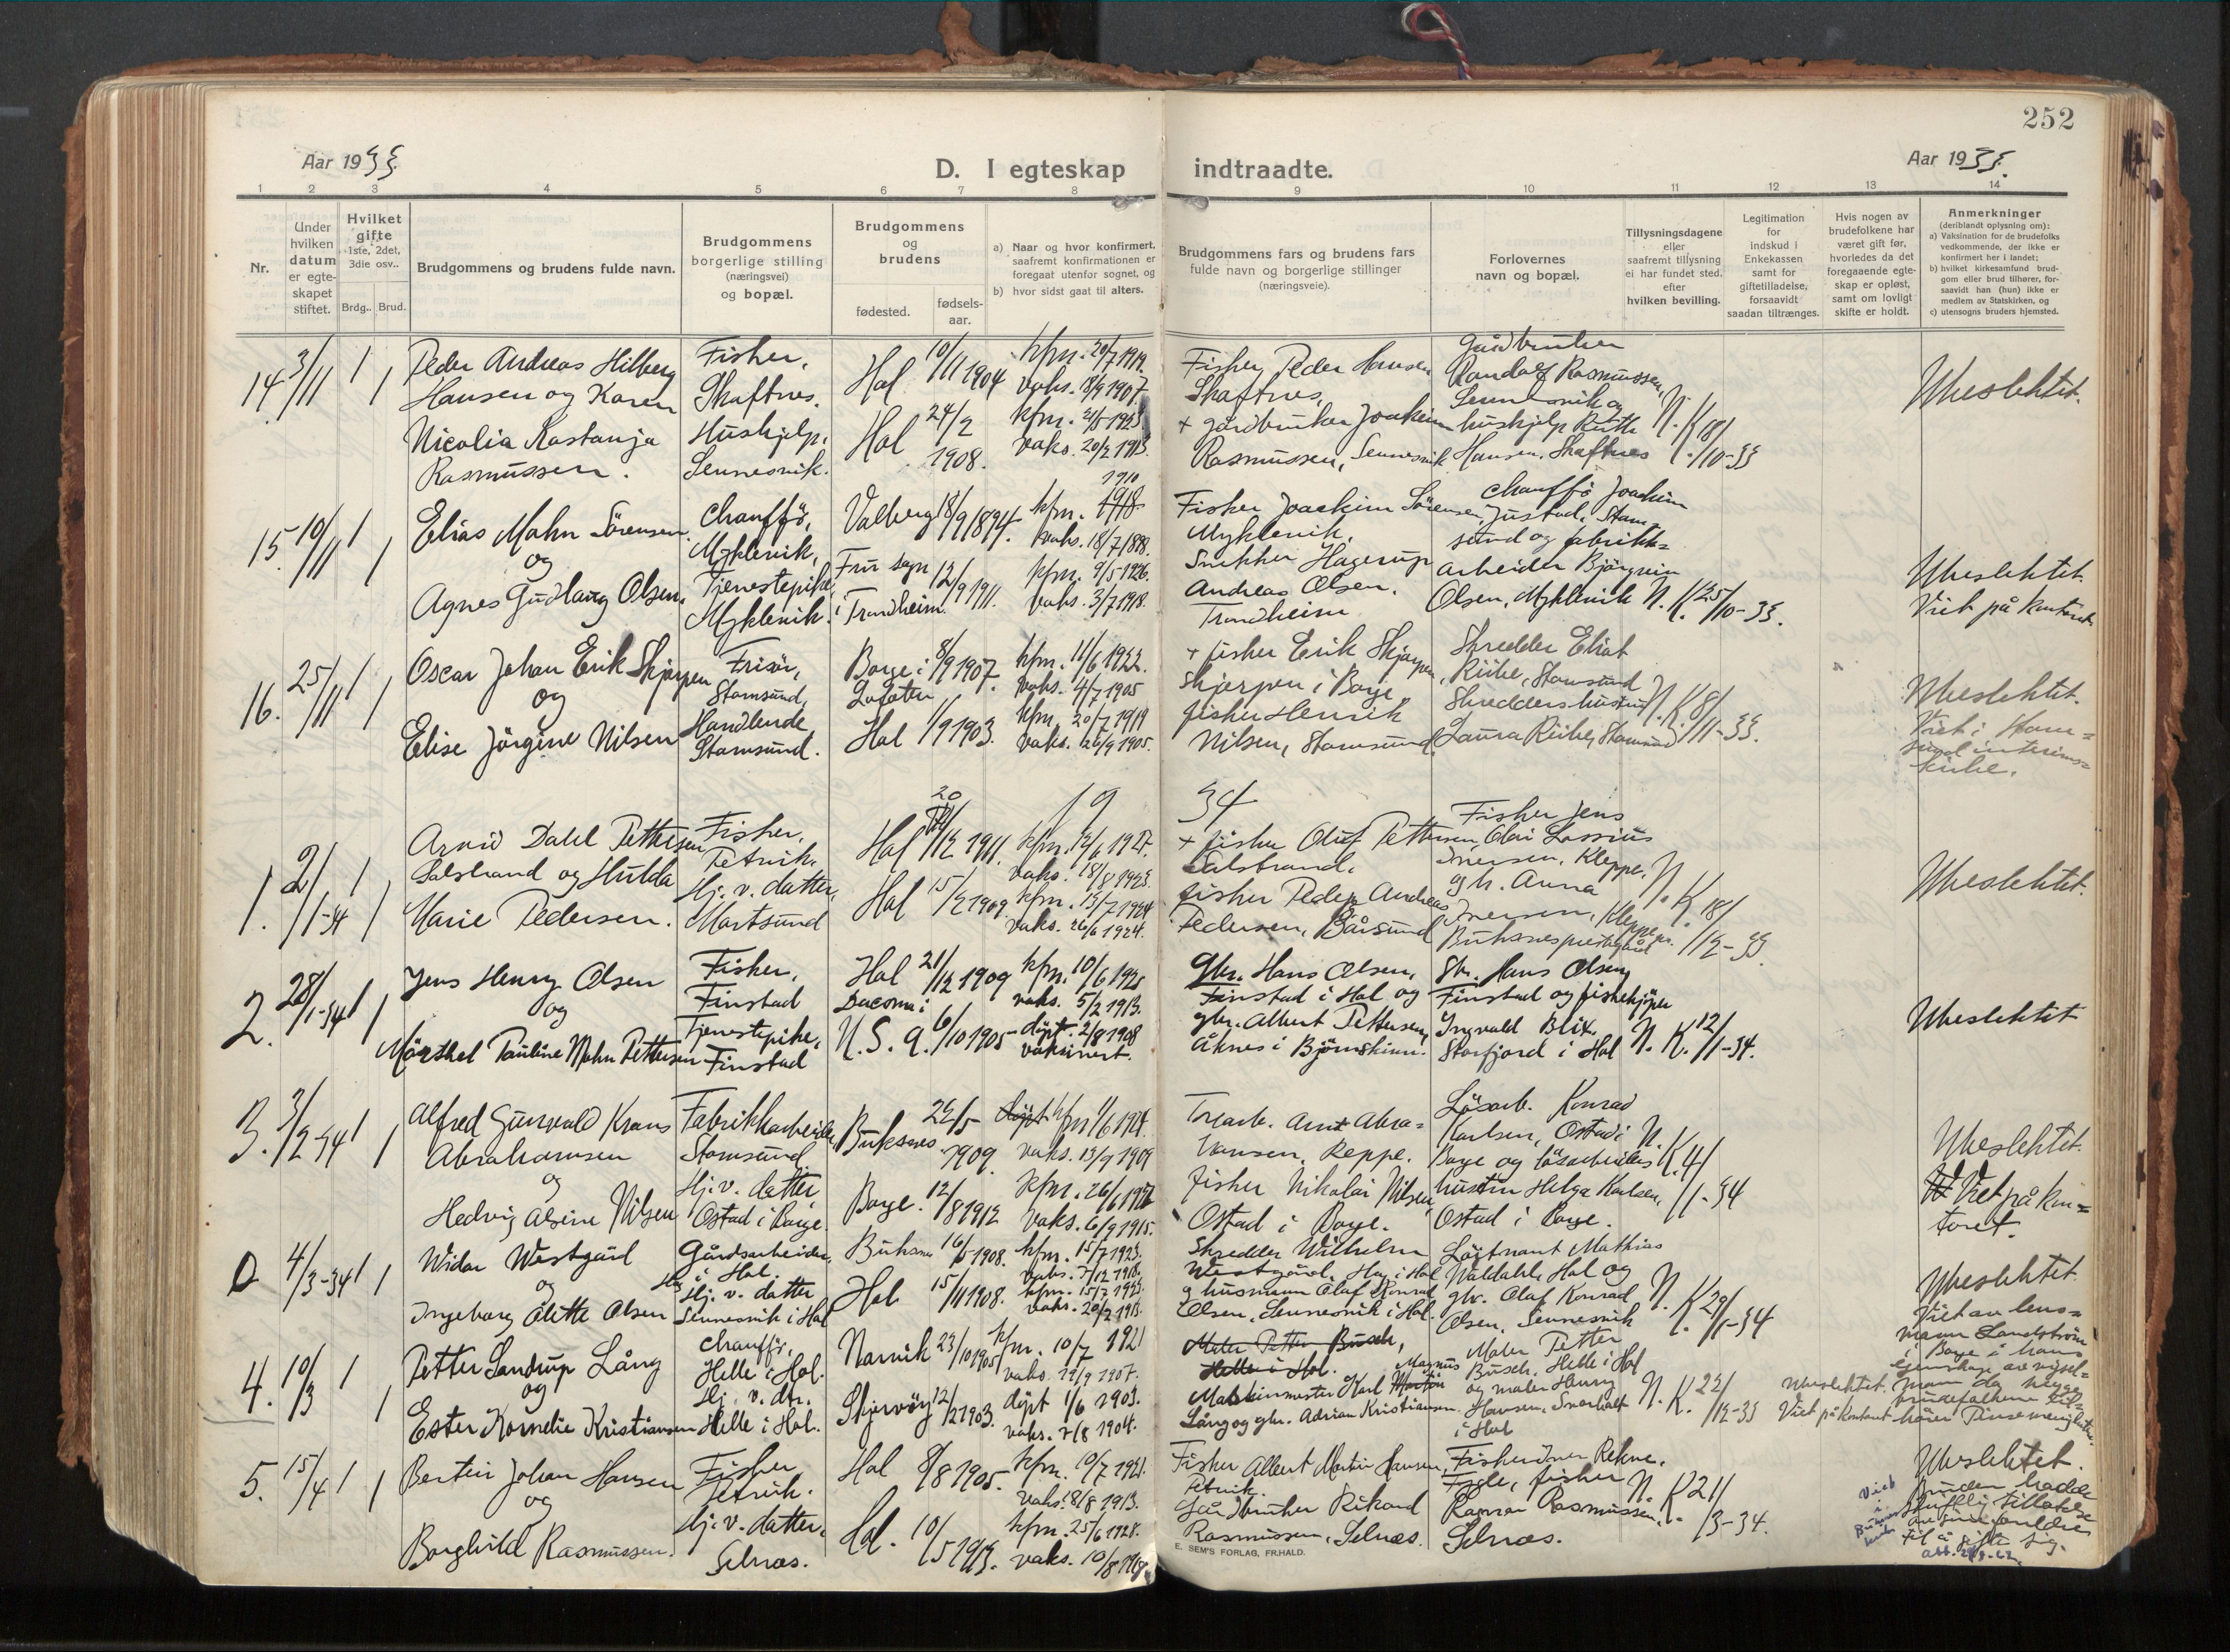 252
Aar 1933.
D. I egteskap indtraadte.
Aar 1933.
1 2 3 4 5 6 7 8 9 10 11 12 13 14
Nr.
Under hvilken datum er egteskapet stiftet.
Hvilket gifte 1ste, 2det, 3die osv..
Brdg.. Brud.
Brudgommens og brudens fulde navn.
Brudgommens borgerlige stilling (næringsvei) og bopæl.
Brudgommens og brudens
fødested.
fødsels-aar.
a) Naar og hvor konfirmert, saafremt konfirmationen er foregaat utenfor sognet, og
b) hvor sidst gaat til alters.
Brudgommens fars og brudens fars fulde navn og borgerlige stillinger (næringsveie).
Forlovernes navn og bopæl.
Tillysningsdagene eller saafremt tillysning ei har fundet sted, efter hvilken bevilling.
Legitimation for indskud i Enkekassen samt for giftetilladelse, forsaavidt saadan tiltrænges.
Hvis nogen av brudefolkene har været gift før, hvorledes da det foregaaende egteskap er opløst, samt om lovligt skifte er holdt.
Anmerkninger (deriblandt oplysning om):
a) Vaksination for de brudefolks vedkommende, der ikke er konfirmert her i landet;
b) hvilket kirkesamfund brudgom eller brud tilhører, forsaavidt han (hun) ikke er medlem av Statskirken, og
c) utensogns bruders hjemsted.
14 3/11 1 1
Peder Andreas Hilberg
Hansen og Karen
Nicolia Kastanja
Rasmussen.
Fisker,
Skaftnes.
Hushjelp,
Sennesvik.
Hol 10/11 1904 kfm. 20/7 1919.
vaks. 18/9 1907.
Hol 24/2 1908.
vaks. 20/2 1913.
Fisker Peder Hansen
Skaftnes,
+ gårdbruker Joakim
Rasmussen, Sennesvik
Gårdbruker
Randolf Rasmussen,
Sennesvik og
hushjelp Ruth
Hansen, Skaftnes
N. K. 18/10-33
Ubeslektet.
15. 10/11 1 1
Elias Mahn Sörensen
og
Agnes Gudlaug Olsen.
Chauffö,
Myklevik,
Tjenestepike,
Myklevik.
Valberg 18/9 1894. kfm. 1910
vaks. 18/7 1898.
Frue sogn i Trondheim 12/9 1911. kfm. 9/5 1926.
vaks. 3/7 1918.
Fisker Joackim Sörensen,
Myklevik.
Snekker Hagerup
Andreas Olsen.
Trondheim
Chauffö Joackim
Justad, Stam-
sund og fabrikk-
arbeider Björgvin
Olsen, Myklevik
N. K. 25/10-33.
Ubeslektet.
Viet på kontoret.
16. 25/11 1 1
Oscar Johan Erik Skjerpen
og
Elise Jörgine Nilsen
Frisör,
Stamsund,
Handlende
Stamsund.
Borge i Lofoten 8/9 1907. kfm. 11/6 1922.
vaks. 4/7 1905
Hol 1/9 1903. kfm. 20/7 1919
vaks. 26/9 1905.
+ fisker Erik Skjerpen,
Skjerpen i Borge
fisker Henrik
Nilsen, Stamsund.
Skredder Eliot
Riibe, Stamsund
Skredderhustru
Laura Riibe, Stamsund
N. K. 8/11-33.
Ubeslektet.
Viet i Stam-
sund interims-
kirke.
19 34
1. 2/1-34 1 1
Arvid Dahl Pettersen
Salstrand og Hulda
Marie Pedersen.
Fisker,
Petvik.
Hj. v. datter,
Mortsund
Hol 20/12 1911. kfm. 12/6 1927.
vaks. 18/8 1923.
Hol 15/2 1909. kfm. 13/7 1924
vaks. 26/6 1924.
+ fisker Oluf Pettersen
Salstrand.
fisker Peder Andreas
Pedersen, Bårsund
Fisker Jens
Olai Lassius
Iversen, Kleppe,
og h. Anna
Iversen, Kleppe pr.
Buksnesprestegård
N. K. 18/12-33.
Ubeslektet.
2. 28/1-34 1 1
Jens Henry Olsen
og
Märthel Pauline Mahn Pettersen
Fisker,
Finstad
Tjenestepike,
Finstad
Hol 21/12 1909 kfm. 10/6 1925
vaks. 5/2 1913.
Dacoma i U.S.A. 6/10 1905 döpt 2/8 1908
vaksinert.
Gbr. Hans Olsen,
Finstad i Hol og
gbr. Albert Pettersen,
Åknes i Björnskinn.
Gbr. Hans Olsen,
Finstad og fiskekjöper
Ingvald Blix
Storfjord i Hol
N. K. 12/1-34.
Ubeslektet
3. 3/2-34 1 1
Alfred Gunvald Krans
Abrahamsen
og
Hedvig Alvine Nilsen
Fabrikkarbeider
Stamsund
Hj. v. datter
Ostad i Borge.
Buksnes 22/5 1909. kfm. 1/6 1924.
vaks. 13/9 1909
Borge. 12/8 1912 kfm. 26/6 1926
vaks. 6/9 1915.
Arnt Abra-
hamsen, Reppe.
fisker Nikolai Nilsen,
Ostad i Borge.
Lösarb. Konrad
Karlsen, Ostad i
Borge og lösarbeiders
hustru Helga Karlsen,
Ostad i Borge.
N. K. 4/1-34
Ubeslektet.
Viet på kon-
toret.
0 4/3-34 1 1
Widar Westgård
og
Ingeborg Olette Olsen
Gårdsarbeider,
Hag i Hol.
Hj. v. datter
Sennesvik i Hol
Buksnes 16/5 1908. kfm. 15/7 1923.
vaks. 7/12 1918.
Hol 15/11 1908. kfm. 15/7 1923.
vaks. 20/2 1913.
Skredder Wilhelm
Westgård, Hag i Hol
og husmann Olaf Konrad
Olsen, Sennesvik i Hol.
Löjtnant Mathias
Waldahl, Hol og
gbr. Olaf Konrad
Olsen, Sennesvik
N. K. 29/1-34
Ubeslektet.
Viet av lens-
mann Sandström
i Borge i hans
egenskap av vigsel-
mann da begge
brudefolkene til-
hörer Pinsemenigheten.
4. 10/3 1 1
Petter Sandrup Lång
og
Ester Kornelie Kristiansen
Chauffö,
Helle i Hol.
Hj. v. dtr.
Helle i Hol.
Narvik 23/10 1905 kfm. 10/7 1921
vaks. 19/9 1907.
Skjervöy 12/2 1903. döpt 1/6 1903.
vaks. 7/8 1904.
Maler Petter Busch,
Helle i Hol.
Maskinmester Karl Magnus
Lång og gbr. Adrian Kristiansen
Maler Petter
Busch, Helle i Hol
og maler Henry
Hansen, Svarholt
i Hol
N. K. 22/12-33
Ubeslektet.
Viet på kontoret
5. 15/4 1 1
Bertin Johan Hansen
og
Borghild Rasmussen.
Fisker
Petvik.
Hj. v. datter,
Selnæs.
Hol 8/8 1905. kfm. 10/7 1921.
vaks. 8/8 1913.
Hol. 10/5 1913. kfm. 25/6 1928.
vaks. 10/8 1918.
Fisker Albert Martin Hansen,
Petvik.
Gårdbruker Rikard
Rasmussen, Selnæs.
Fisker Iver Rekve,
Fygle, fisker
Ragnar Rasmussen,
Selnæs.
N. K. 21/3-34.
Ubeslektet.
Bruden hadde
skriftlig tillatelse
av sine foreldre
til å gifte sig.
Viet
i
Buksnes
kirke
E. SEM'S FORLAG, FR.HALD.